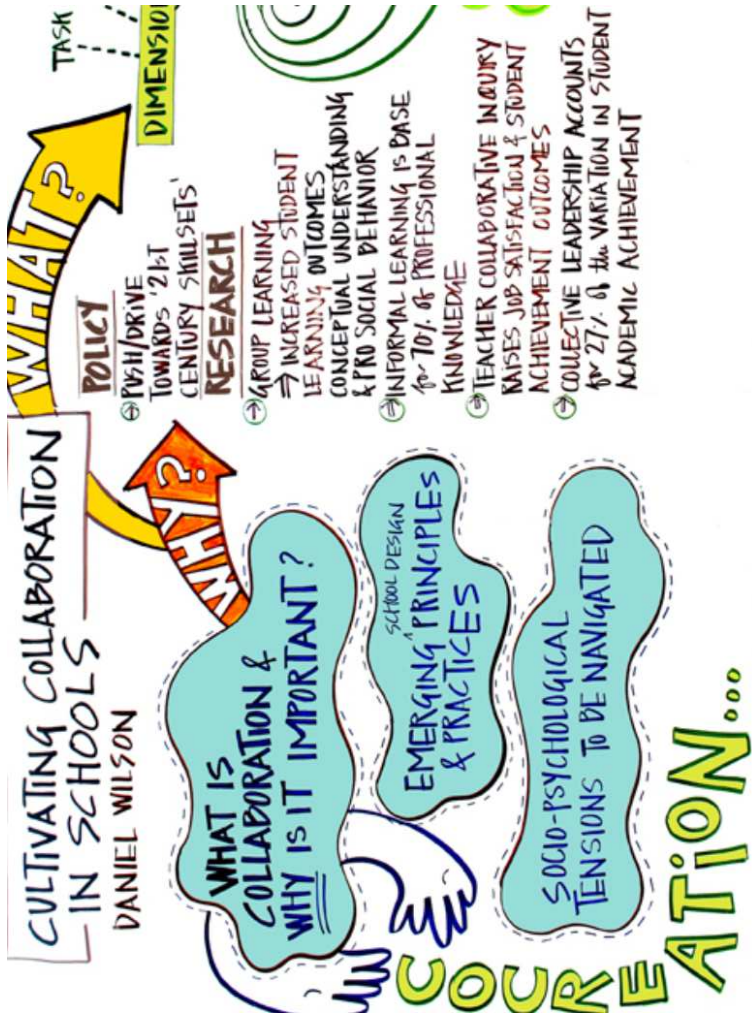 CULTIVATING COLLABORATION
IN SCHOOLS
DANIEL WILSON
WHAT IS
COLLABORATION &
WHY IS IT IMPORTANT?
SCHOOL DESIGN
EMERGING PRINCIPLES
& PRACTICES
SOCIO-PSYCHOLOGICAL
TENSIONS TO BE NAVIGATED
COCREATION...
WHY?
WHAT?
POLICY
PUSH/DRIVE
TOWARDS '21ST
CENTURY SKILLSETS'
RESEARCH
GROUP LEARNING
⇒ INCREASED STUDENT
LEARNING OUTCOMES
CONCEPTUAL UNDERSTANDING
& PRO SOCIAL BEHAVIOR
INFORMAL LEARNING IS BASE
for 70% of PROFESSIONAL
KNOWLEDGE
TEACHER COLLABORATIVE INQUIRY
RAISES JOB SATISFACTION & STUDENT
ACHIEVEMENT OUTCOMES
COLLECTIVE LEADERSHIP ACCOUNTS
for 27% of the VARIATION IN STUDENT
ACADEMIC ACHIEVEMENT
TASK
DIMENSION